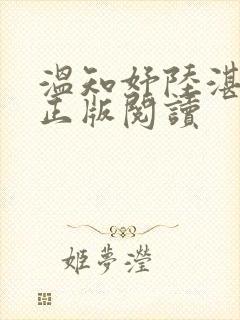 溫知妤陸湛
正版閱讀
姬夢瀅